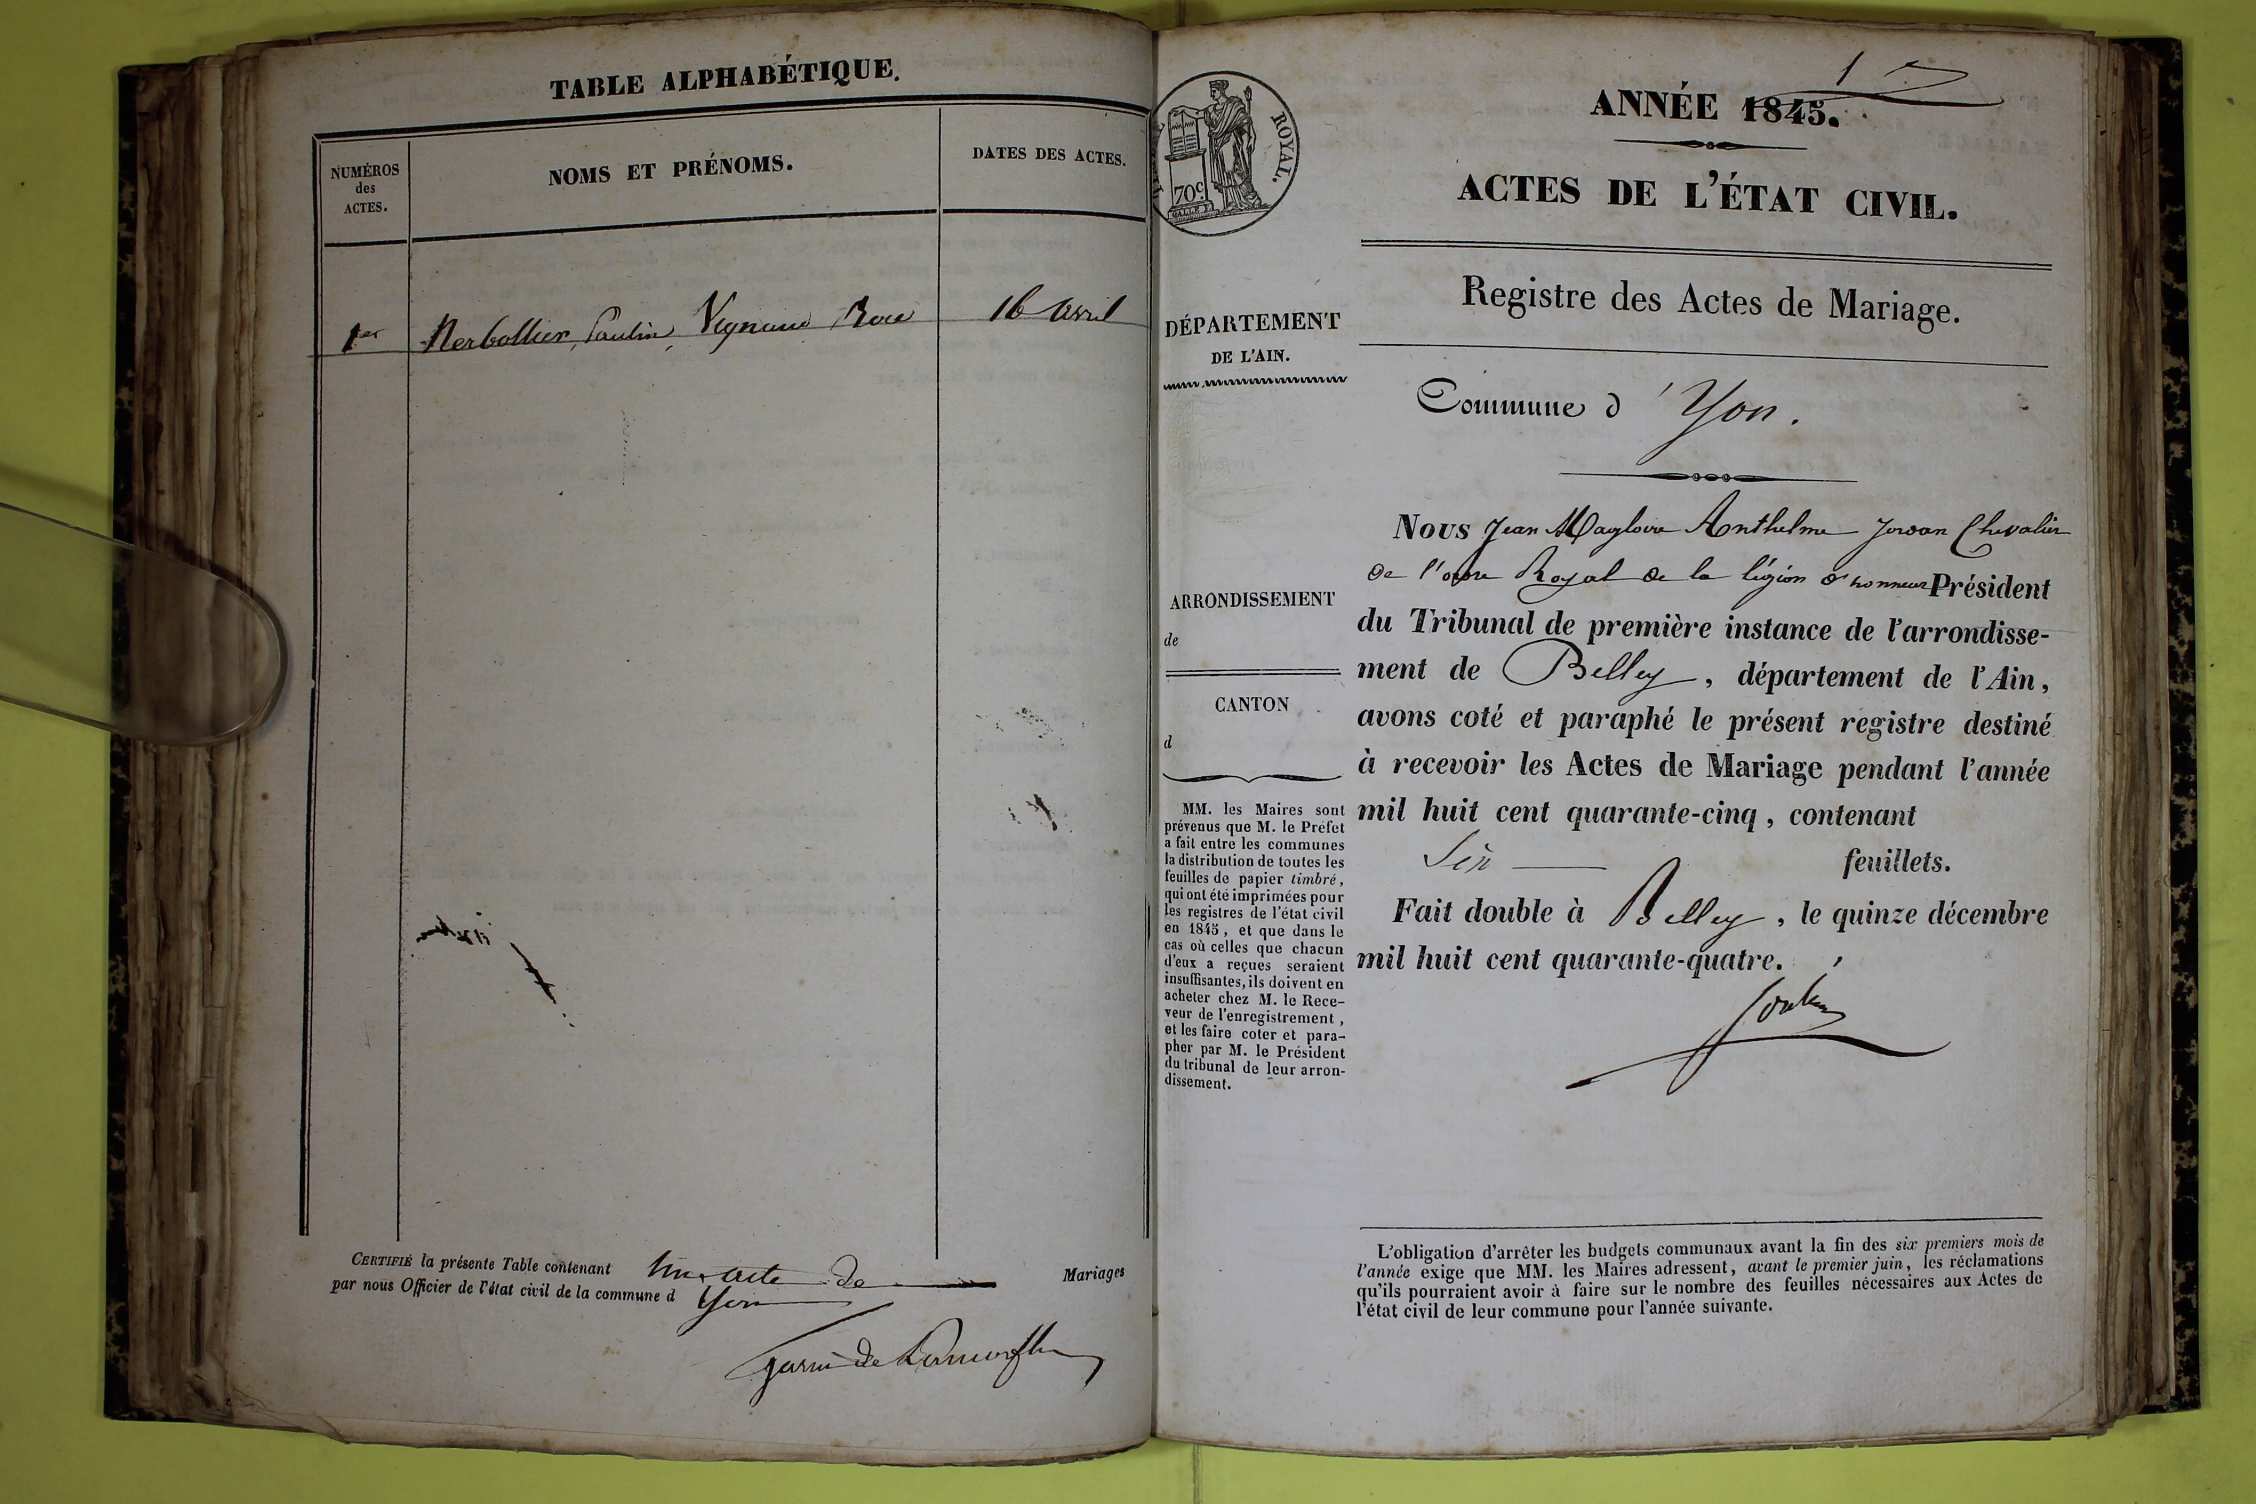 TABLE ALPHABÉTIQUE.
NUMÉROS
des
ACTES.
NOMS ET PRÉNOMS.
DATES DES ACTES.
1er Nerbollier, Paulin, 16 avril
CERTIFIÉ la présente Table contenant un acte de Mariages
par nous Officier de l'état civil de la commune d Yon
ROYAL.
70c
DÉPARTEMENT
DE L'AIN.
ARRONDISSEMENT
de
CANTON
d
MM. les Maires sont
prévenus que M. le Préfet
a fait entre les communes
la distribution de toutes les
feuilles de papier timbré,
qui ont été imprimées pour
les registres de l'état civil
en 1845, et que dans le
cas où celles que chacun
d'eux a reçues seraient
insuffisantes, ils doivent en
acheter chez M. le Rece-
veur de l'enregistrement,
et les faire coter et para-
pher par M. le Président
du tribunal de leur arron-
dissement.
1
ANNÉE 1845.
ACTES DE L'ÉTAT CIVIL.
Registre des Actes de Mariage.
Commune d'Yon.
Nous Jean Magloire Anthelme Jordan Chevalier
de l'ordre Royal de la légion d'honneur Président
du Tribunal de première instance de l'arrondisse-
ment de Belley, département de l'Ain,
avons coté et paraphé le présent registre destiné
à recevoir les Actes de Mariage pendant l'année
mil huit cent quarante-cinq, contenant
feuillets.
Fait double à Belley, le quinze décembre
mil huit cent quarante-quatre.
L'obligation d'arrêter les budgets communaux avant la fin des six premiers mois de
l'année exige que MM. les Maires adressent, avant le premier juin, les réclamations
qu'ils pourraient avoir à faire sur le nombre des feuilles nécessaires aux Actes de
l'état civil de leur commune pour l'année suivante.